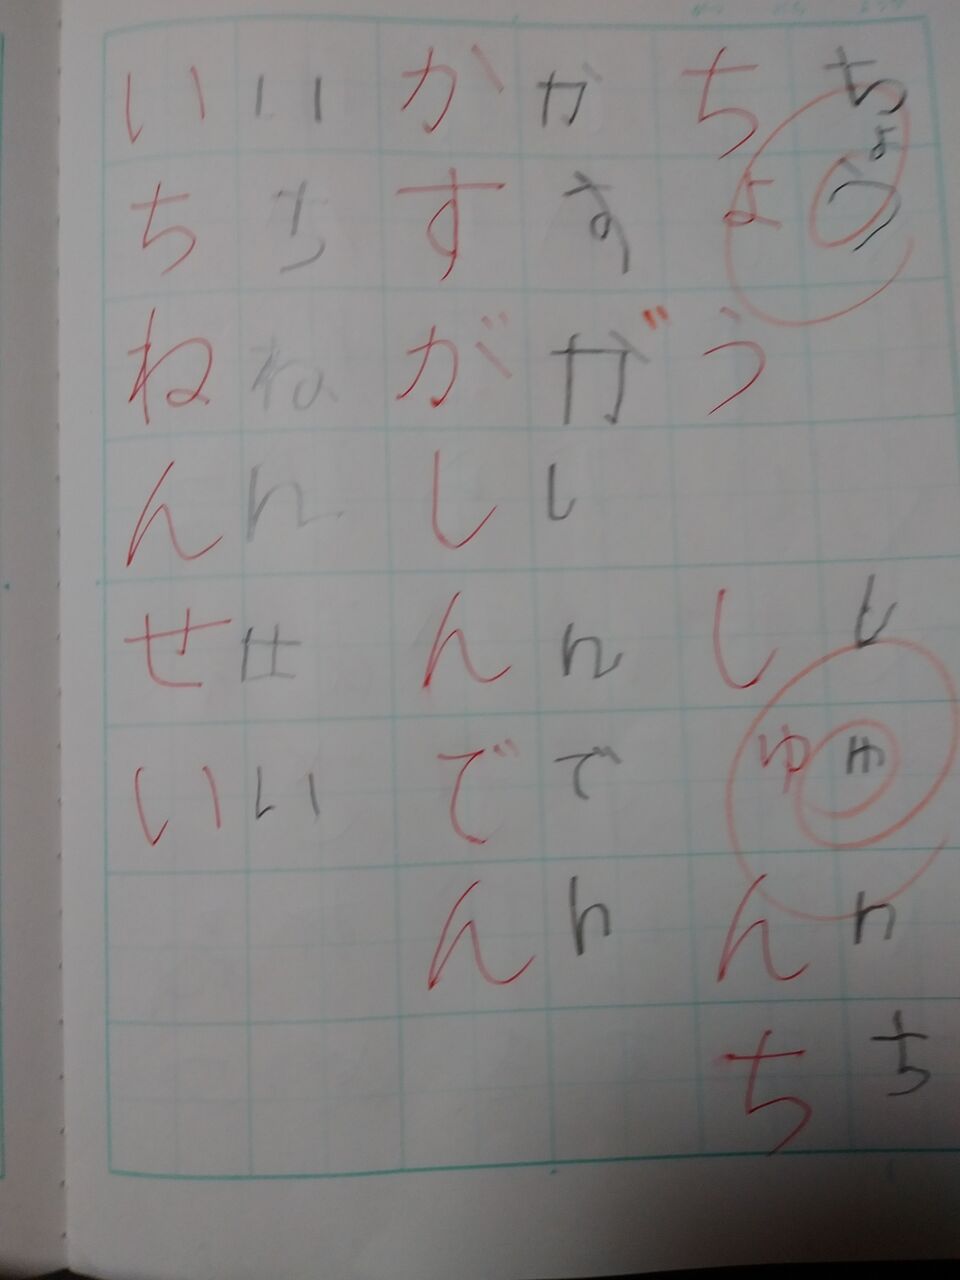 ちょう　し んち
ちょう　しゅんち
かすがしんでん
かすがしんでん
いちねんせい
いちねんせい